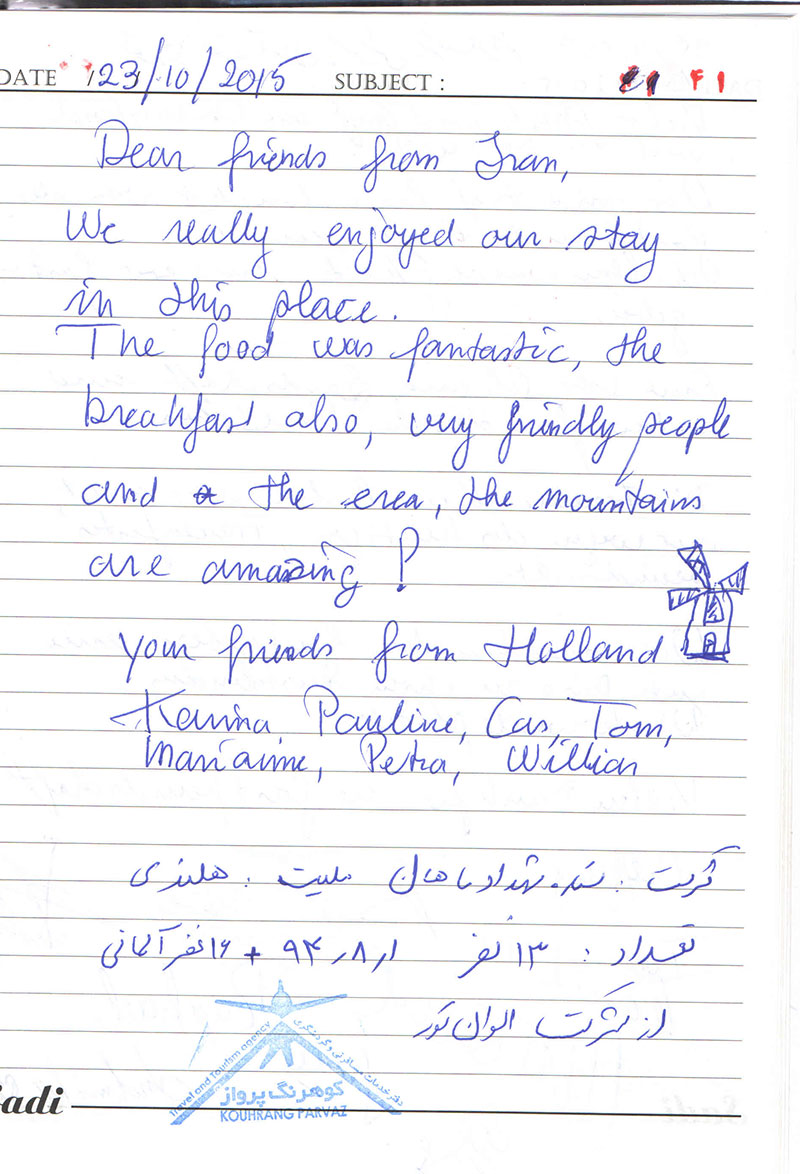 DATE 23/10/2015 SUBJECT : ۴۱
Dear friends from Iran,
We really enjoyed our stay
in this place.
The food was fantastic, the
breakfast also, very friendly people
and the erea, the mountains
are amazing!
Your friends from Holland
Karina, Pauline, Cas, Tom,
Marianne, Petra, Willian
شرکت : ملیت : هلندی
تعداد : ۱۳ نفر ۹۴٫۸٫۱ + ۱۶ نفر آلمانی
از شرکت الوان تور
Travel and Tourism agency
دفتر خدمات مسافرتی و گردشگری
کوهرنگ پرواز
KOUHRANG PARVAZ
adi